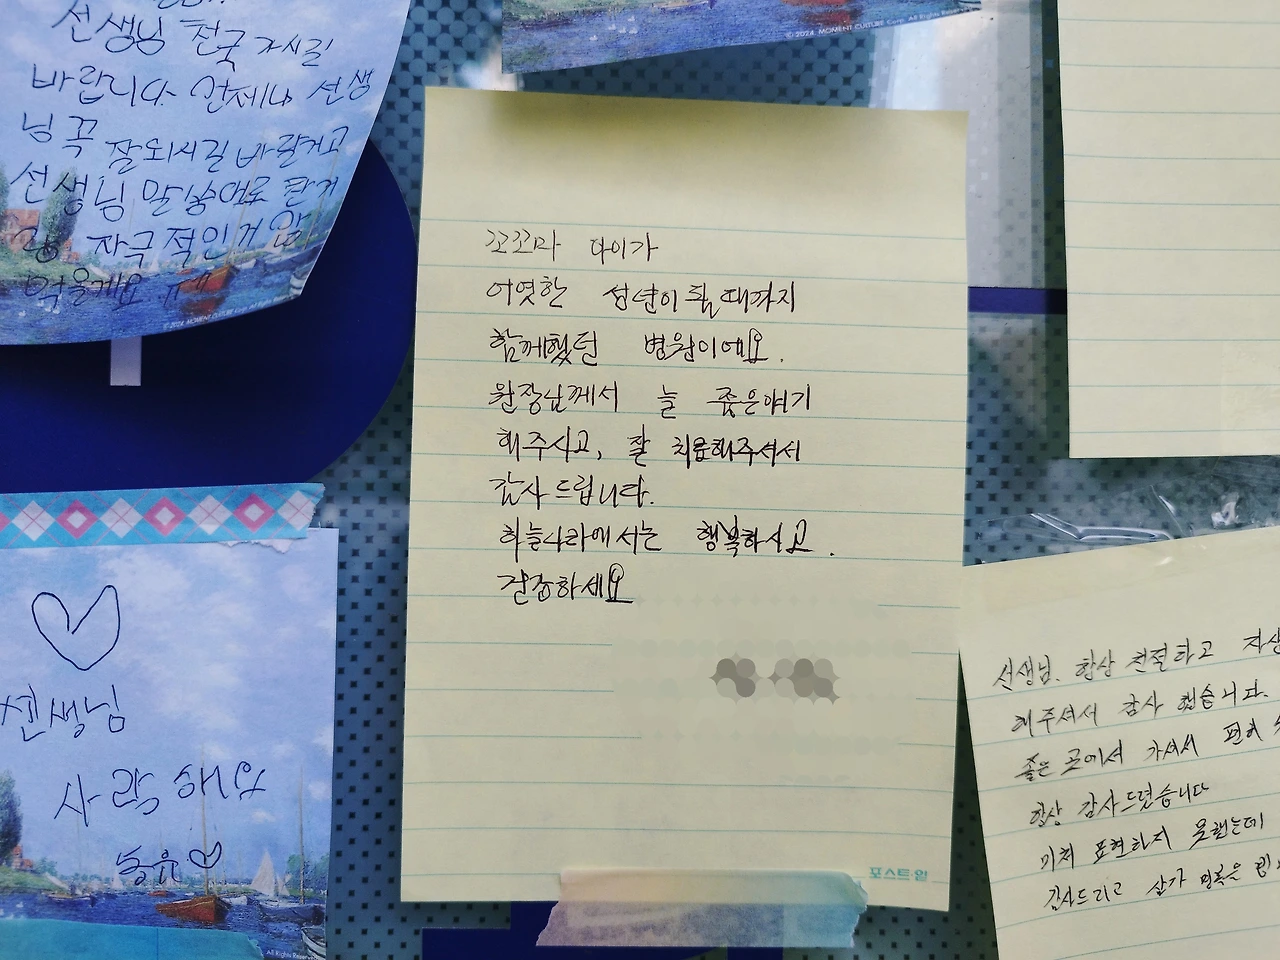 선생님 천국 가시길
바랍니다 언제나 선생
님 꼭 잘되시길 바랄거고
선생님 말씀대로 탄거
랑 자극적인거 안
먹을게요 ㅠㅠ
© 2024. MOMENT CULTURE Corp. All Rights Reserved
© 2024. MOMENT CULTURE
꼬꼬마 아이가
어엿한 성년이 될 때까지
함께했던 병원이에요.
원장님께서 늘 좋은얘기
해주시고, 잘 치료해주셔서
감사드립니다.
하늘나라에서는 행복하시고.
건강하세요
포스트·잇
센생님
사랑해요
All Rights Reserved
선생님. 항상 친절하고 자상
해주셔서 감사했습니다.
좋은 곳에서 가셔서 편히
항상 감사드렸습니다
미처 표현하지 못했는데
감사드리고 삼가 명복을 빕니